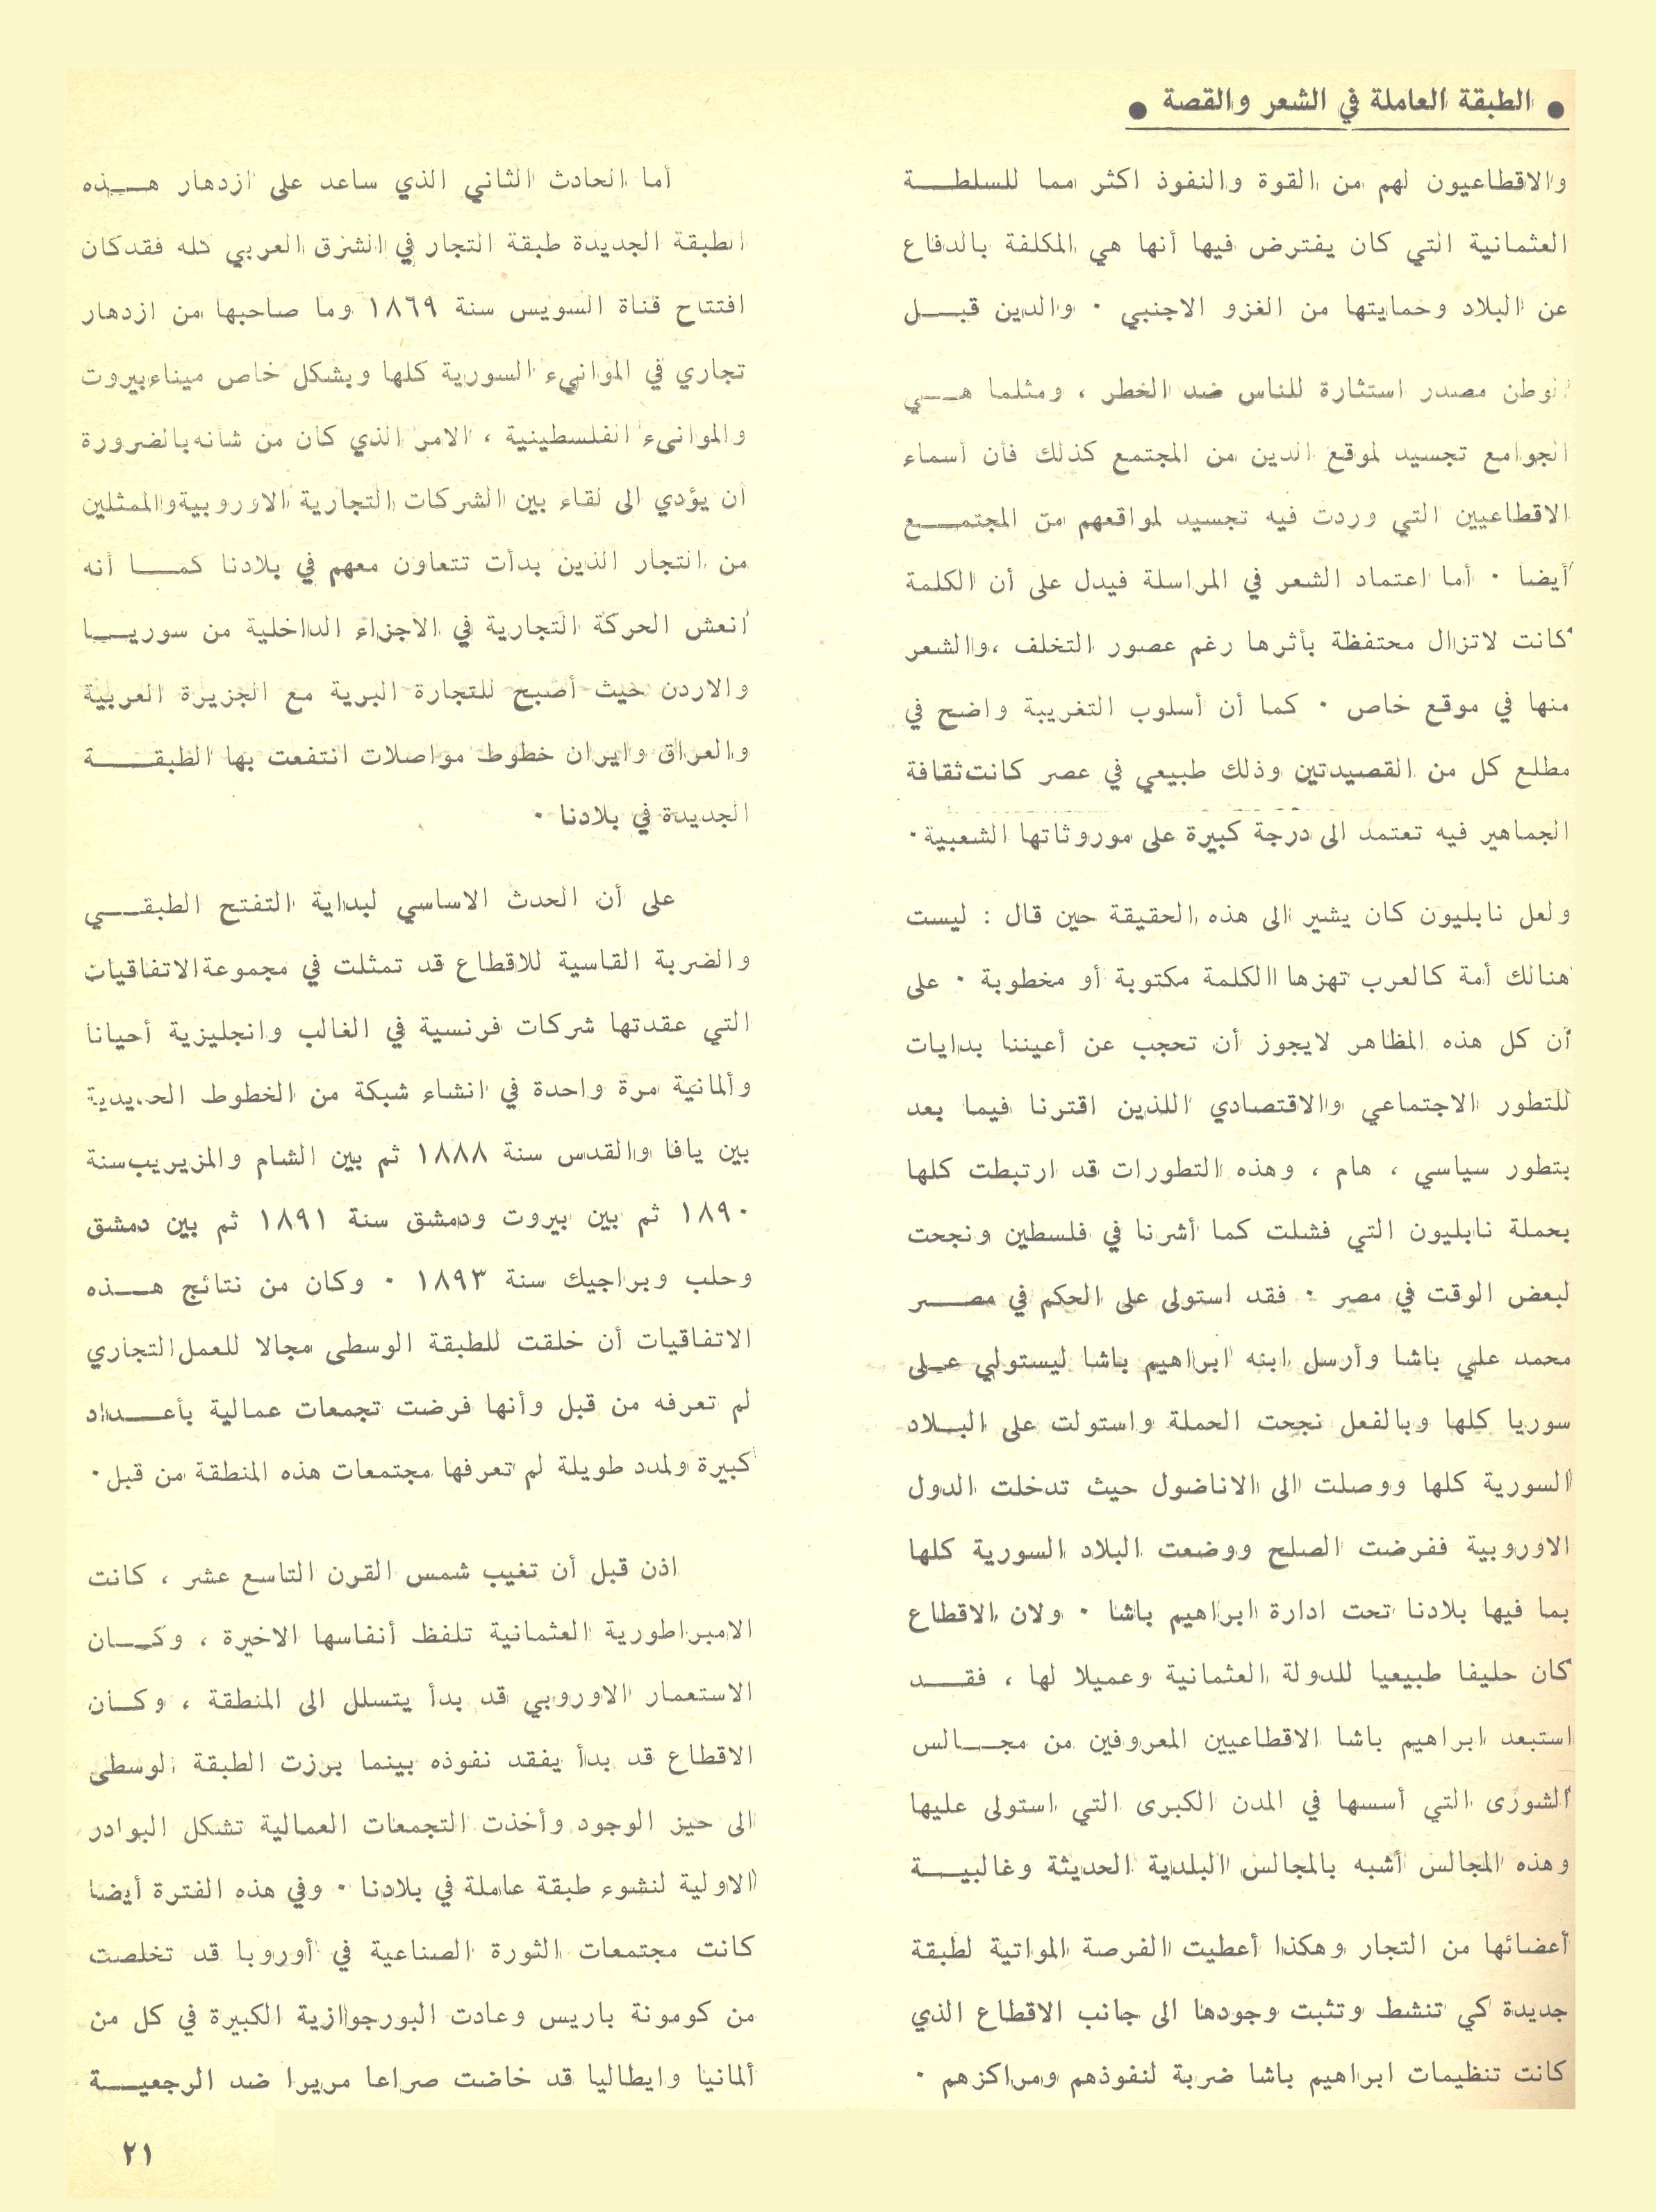 ● الطبقة العاملة في الشعر والقصة ●
والاقطاعيون لهم من القوة والنفوذ اكثر مما للسلطة
العثمانية التي كان يفترض فيها أنها هي المكلفة بالدفاع
عن البلاد وحمايتها من الغزو الاجنبي ٠ والدين قبل
الوطن مصدر استثارة للناس ضد الخطر ، ومثلما هي
الجوامع تجسيد لموقع الدين من المجتمع كذلك فأن أسماء
الاقطاعيين التي وردت فيه تجسيد لمواقعهم من المجتمع
أيضا ٠ أما اعتماد الشعر في المراسلة فيدل على أن الكلمة
كانت لاتزال محتفظة بأثرها رغم عصور التخلف ،والشعر
منها في موقع خاص ٠ كما أن أسلوب التغريبة واضح في
مطلع كل من القصيدتين وذلك طبيعي في عصر كانت ثقافة
الجماهير فيه تعتمد الى درجة كبيرة على موروثاتها الشعبية ٠
ولعل نابليون كان يشير الى هذه الحقيقة حين قال : ليست
هنالك أمة كالعرب تهزها الكلمة مكتوبة أو مخطوبة ٠ على
أن كل هذه المظاهر لايجوز أن تحجب عن أعيننا بدايات
للتطور الاجتماعي والاقتصادي اللذين اقترنا فيما بعد
بتطور سياسي ، هام ، وهذه التطورات قد ارتبطت كلها
بحملة نابليون التي فشلت كما أشرنا في فلسطين ونجحت
لبعض الوقت في مصر ٠ فقد استولى على الحكم في مصر
محمد علي باشا وأرسل ابنه ابراهيم باشا ليستولي على
سوريا كلها وبالفعل نجحت الحملة واستولت على البلاد
السورية كلها ووصلت الى الاناضول حيث تدخلت الدول
الاوروبية ففرضت الصلح ووضعت البلاد السورية كلها
بما فيها بلادنا تحت ادارة ابراهيم باشا ٠ ولان الاقطاع
كان حليفا طبيعيا للدولة العثمانية وعميلا لها ، فقد
استبعد ابراهيم باشا الاقطاعيين المعروفين من مجالس
الشورى التي أسسها في المدن الكبرى التي استولى عليها
وهذه المجالس أشبه بالمجالس البلدية الحديثة وغالبية
أعضائها من التجار وهكذا أعطيت الفرصة المواتية لطبقة
جديدة كي تنشط وتثبت وجودها الى جانب الاقطاع الذي
كانت تنظيمات ابراهيم باشا ضربة لنفوذهم ومراكزهم ٠
أما الحادث الثاني الذي ساعد على ازدهار هذه
الطبقة الجديدة طبقة التجار في الشرق العربي كله فقد كان
افتتاح قناة السويس سنة ١٨٦٩ وما صاحبها من ازدهار
تجاري في الموانيء السورية كلها وبشكل خاص ميناء بيروت
والموانىء الفلسطينية ، الامر الذي كان من شانه بالضرورة
أن يؤدي الى لقاء بين الشركات التجارية الاوروبية والممثلين
من التجار الذين بدأت تتعاون معهم في بلادنا كما أنه
أنعش الحركة التجارية في الاجزاء الداخلية من سوريا
والاردن حيث أصبح للتجارة البرية مع الجزيرة العربية
والعراق وايران خطوط مواصلات انتفعت بها الطبقة
الجديدة في بلادنا ٠
على أن الحدث الاساسي لبداية التفتح الطبقي
والضربة القاسية للاقطاع قد تمثلت في مجموعة الاتفاقيات
التي عقدتها شركات فرنسية في الغالب وانجليزية أحيانا
وألمانية مرة واحدة في انشاء شبكة من الخطوط الحديدية
بين يافا والقدس سنة ١٨٨٨ ثم بين الشام والمزيريب سنة
١٨٩٠ ثم بين بيروت ودمشق سنة ١٨٩١ ثم بين دمشق
وحلب وبراجيك سنة ١٨٩٣ ٠ وكان من نتائج هذه
الاتفاقيات أن خلقت للطبقة الوسطى مجالا للعمل التجاري
لم تعرفه من قبل وأنها فرضت تجمعات عمالية بأعداد
كبيرة ولمدد طويلة لم تعرفها مجتمعات هذه المنطقة من قبل ٠
اذن قبل أن تغيب شمس القرن التاسع عشر ، كانت
الامبراطورية العثمانية تلفظ أنفاسها الاخيرة ، وكان
الاستعمار الاوروبي قد بدأ يتسلل الى المنطقة ، وكان
الاقطاع قد بدأ يفقد نفوذه بينما برزت الطبقة الوسطى
الى حيز الوجود وأخذت التجمعات العمالية تشكل البوادر
الاولية لنشوء طبقة عاملة في بلادنا ٠ وفي هذه الفترة أيضا
كانت مجتمعات الثورة الصناعية في أوروبا قد تخلصت
من كومونة باريس وعادت البورجوازية الكبيرة في كل من
ألمانيا وايطاليا قد خاضت صراعا مريرا ضد الرجعية
٢١